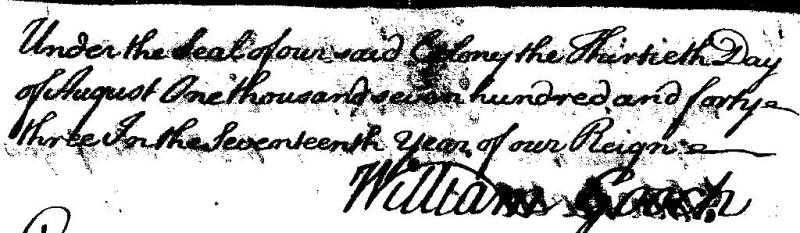 Under the Seal of our said Colony the Thirtieth Day
of August One thousand seven hundred and forty
three In the Seventeenth Year of our Reign
William Gooch